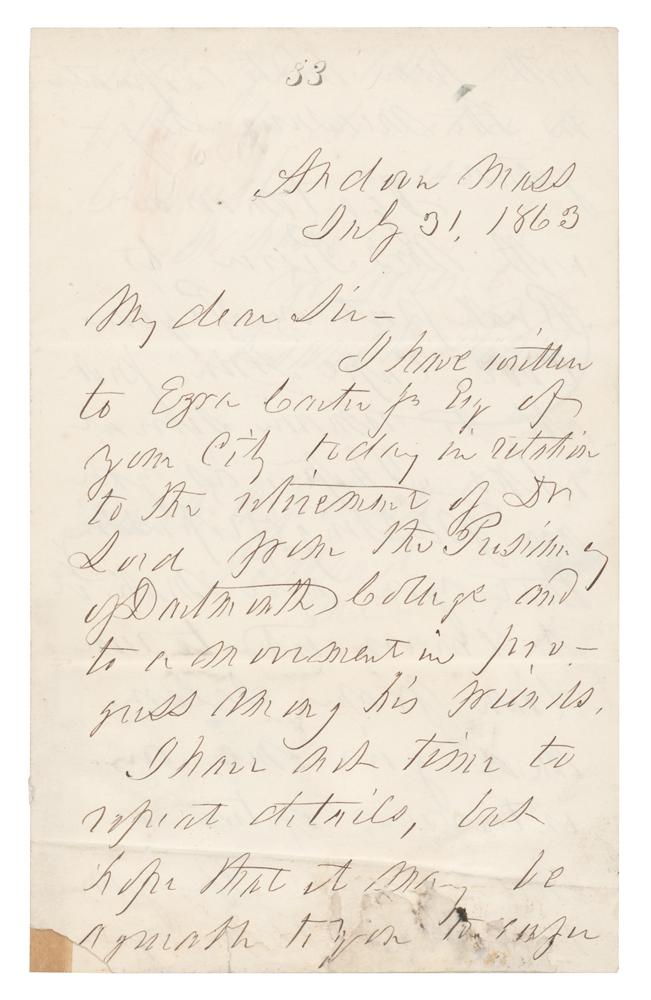 33
Andover Mass
July 31, 1863
My dear Sir—
I have written
to Ezra Carter Jr Esq of
your City today in relation
to the retirement of Dr
Lord from the Presidency
of Dartmouth College and
to a movement in pro-
gress among his friends.
I have not time to
repeat details, but
hope that it may be
agreeable to you to confer